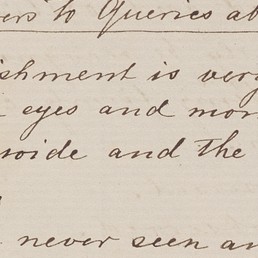 ers to Queries ab
ishment is very
eyes and mor
wide and the
never seen an